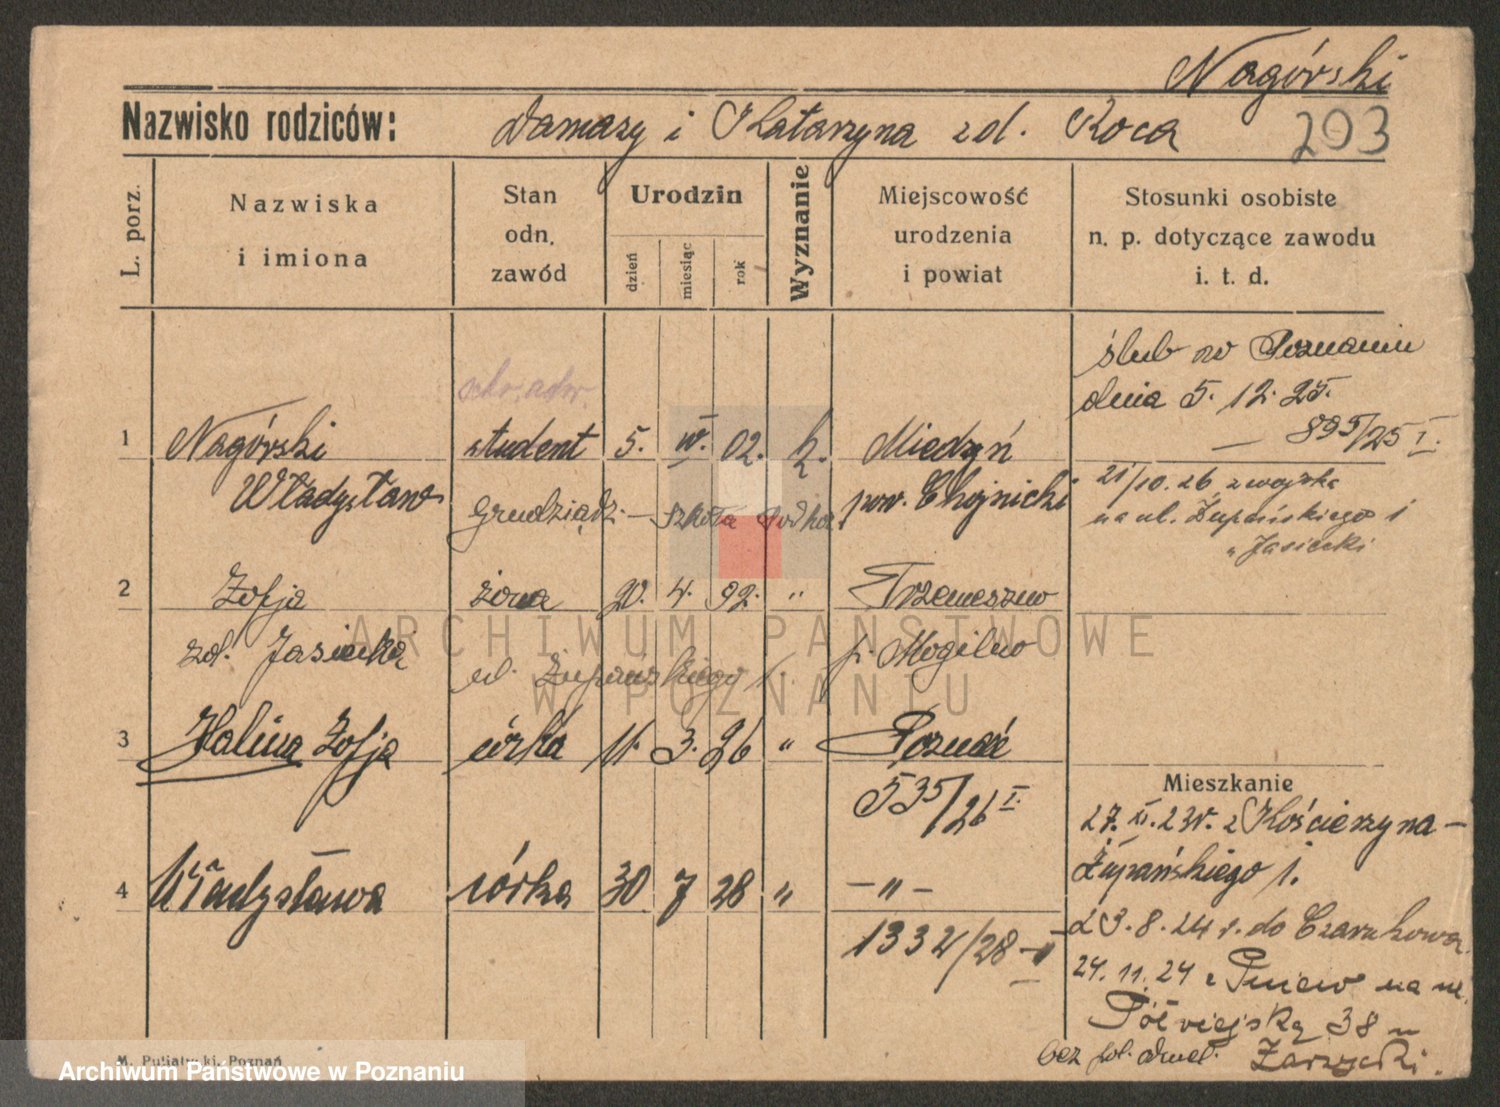 Nagórski
Nazwisko rodziców: Damazy i Katarzyna zd. Koca 293
L. porz.
Nazwiska i imiona
Stan odn. zawód
Urodzin
dzień miesiąc rok
Wyznanie
Miejscowość urodzenia i powiat
Stosunki osobiste n. p. dotyczące zawodu i. t. d.
ślub w Poznaniu
dnia 5. 12. 25.
895/25 I.
1 Nagórski student 5. IV. 02. k. Miedzyń
Władysław Grudziądz – Szkoła Podch. pow. Chojnicki
21/10. 26 z wojska
na ul. Żupańskiego 1
" Jasiecki
2 Zofja żona 20. 4. 02. " Trzemeszno
zd. Jasiecka ul. Żupańskiego 1. p. Mogilno
3 Halina Zofja córka 11. 3. 26 " Poznań
535/26 I.
Mieszkanie
27. XI. 23r. z Kościerzyna –
Żupańskiego 1.
4 Władysława córka 30 7 28 " – " –
1332/28 – I
d 3. 8. 24 r. do Czarnkowa
24. 11. 24 z Pniew na ul.
Półwiejską 38 u
bez pol. Żarzycki.
M. Putiatycki, Poznań
ARCHIWUM PAŃSTWOWE
W POZNANIU
Archiwum Państwowe w Poznaniu